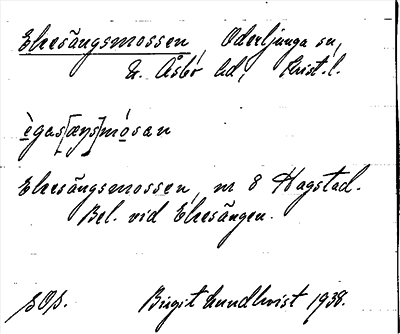 Ekesängsmossen, Oderljunga sn,
N. Åsbo hd, Krist. l.
ègas[æŋs]mósan
Ekesängsmossen, nr 8 Hagstad.
Bel. vid Ekesängen.
Birgit Lundkvist 1938.